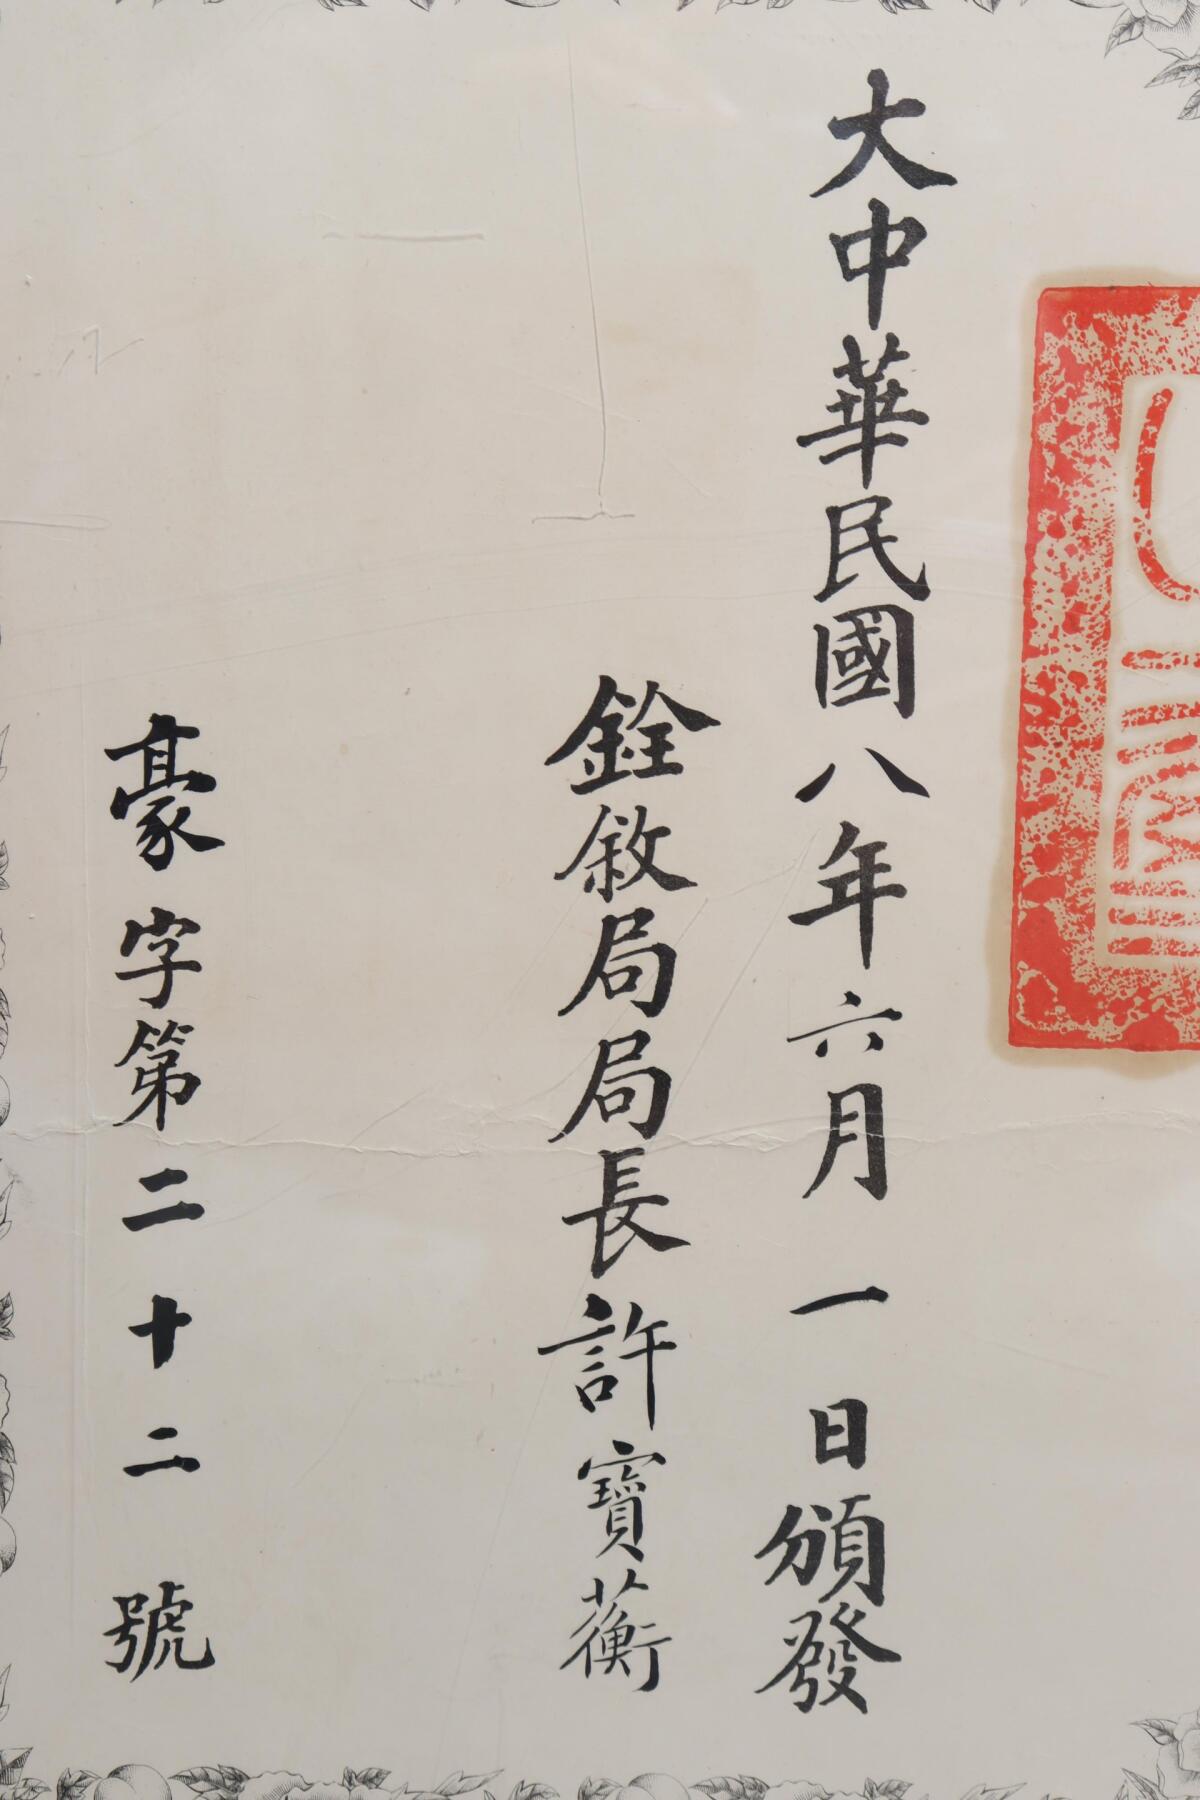 大中華民國八年六月一日頒發
銓敘局局長許寶蘅
豪字第二十二號